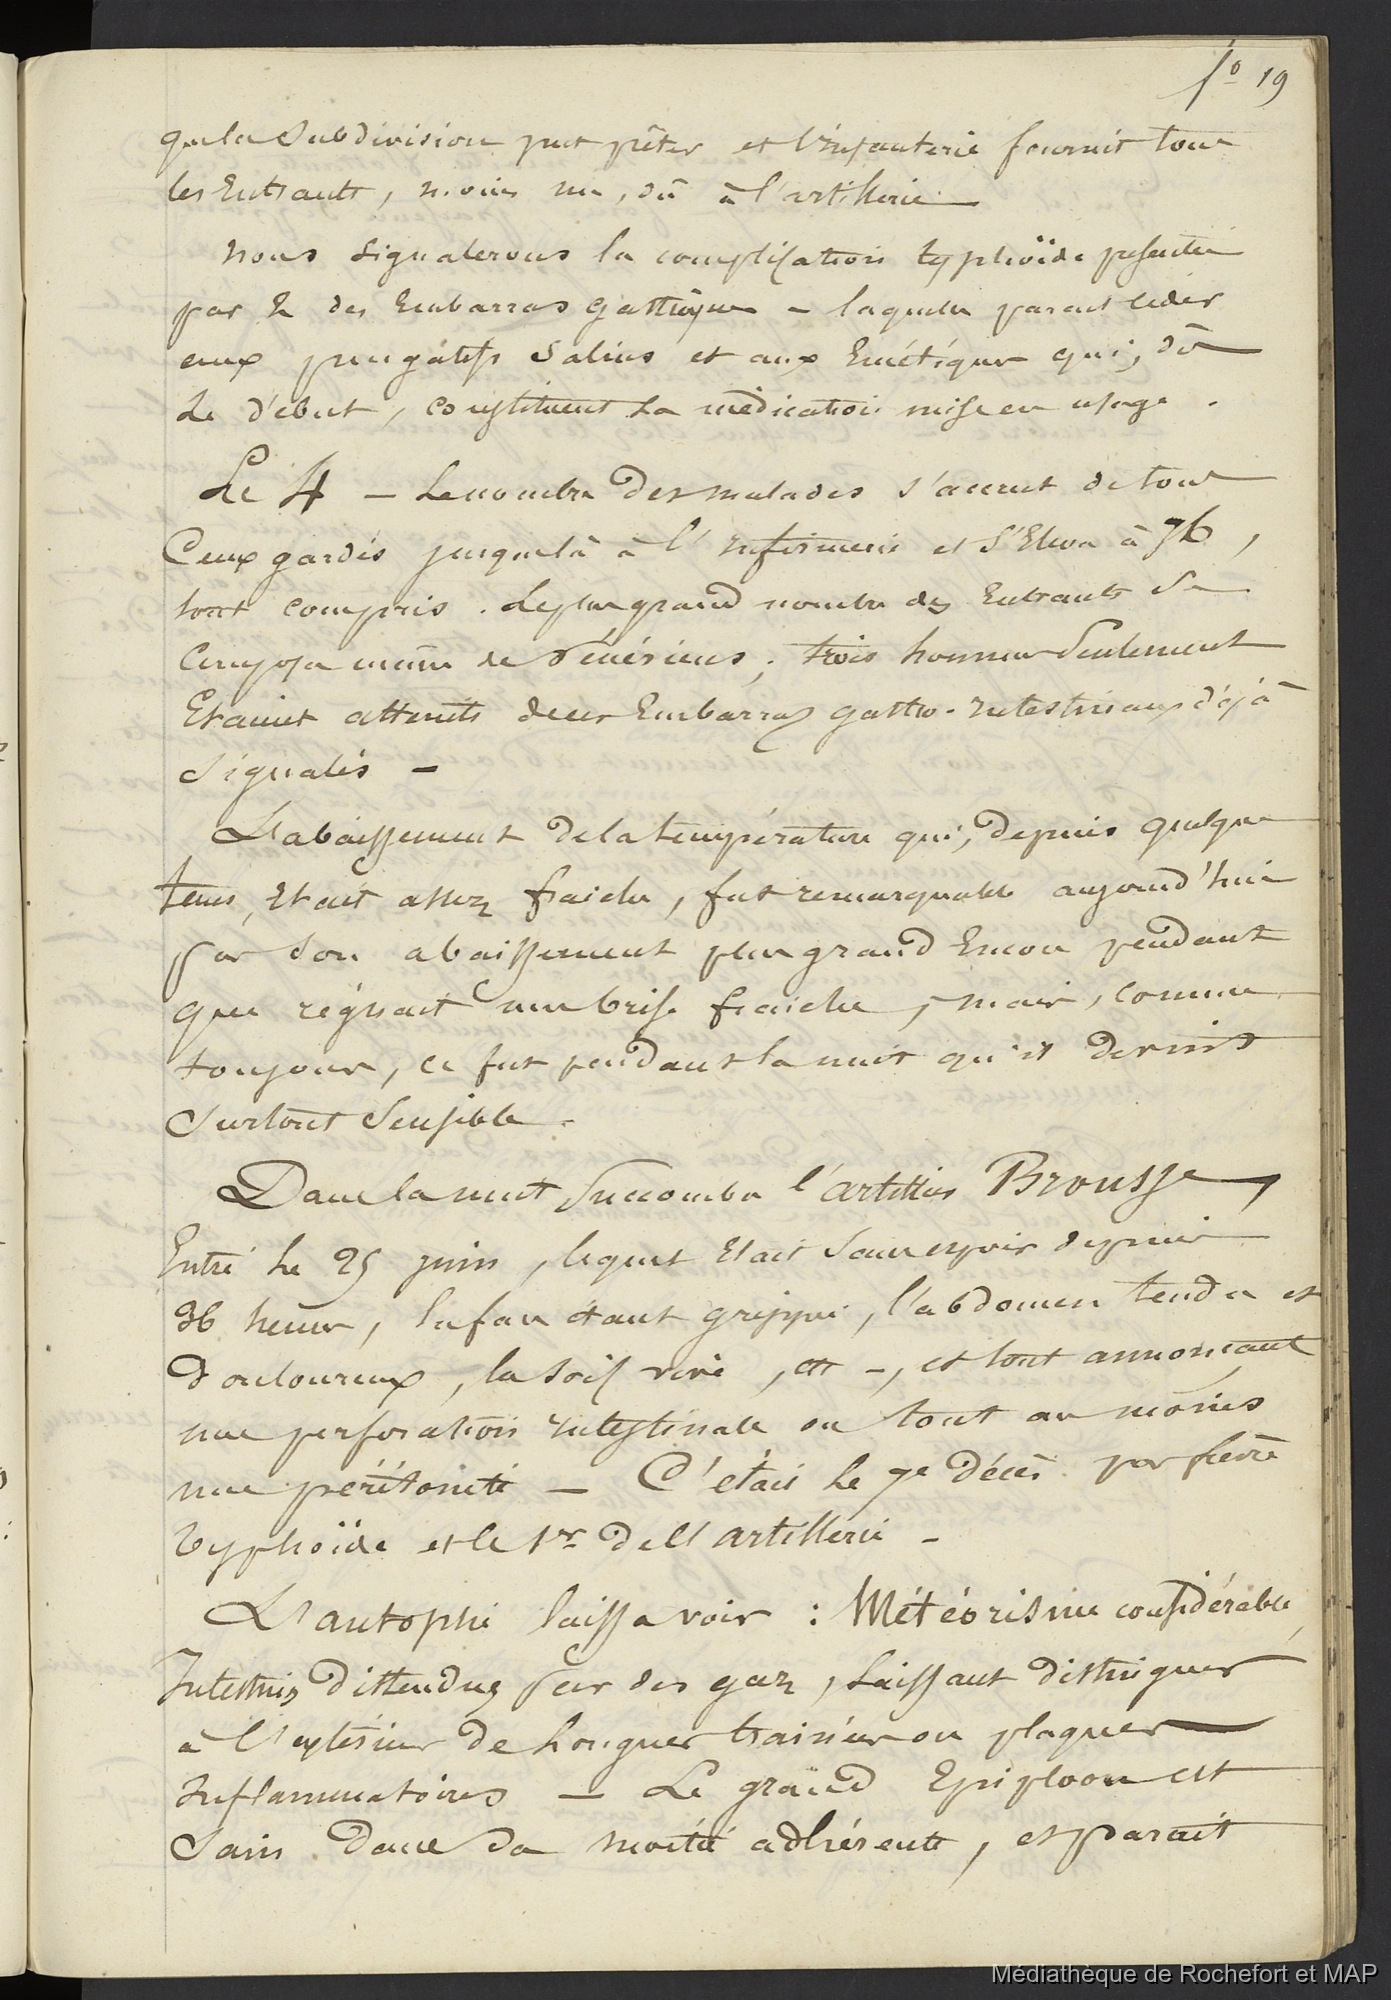 fo 19
que la Subdivision put prêter et l'Infanterie fournit tous
les Entrants, moins un, dû à l'artillerie.
Nous signalerons la complication typhoïde présentée
par 2 des Embarras gastriques – laquelle parait céder
aux purgatifs salins et aux Emétiques qui, dès
le début, constituent la médication mise en usage.
Le 4 — Le nombre des malades s'accrut de tous
Ceux gardés jusque là à l'Infirmerie et s'Eleva à 76,
tout compris. Le plus grand nombre des Entrants se
composa même de Vénériens; trois hommes seulement
Etaient atteints de ces Embarras gastro-Intestinaux déjà
signalés –
L'abaissement de la température qui, depuis quelque
tems, Etait assez fraiche, fut remarquable aujourd'hui
par son abaissement plus grand Encore pendant
que régnait une brise fraiche, mais, comme
toujours, ce fut pendant la nuit qu'il devint
surtout sensible.
Dans la nuit succomba l'artilleur Brousse,
Entré le 25 juin, lequel Etait sans espoir depuis
36 heures, la face étant grippée, l'abdomen tendu et
douloureux, la soif vive, etc –, et tout annonçant
une perforation intestinale ou tout au moins
une péritonite — C'était le 7e décès par fièvre
typhoïde et le 1er de l'artillerie –
L'autopsie laissa voir : Météorisme considérable,
Intestins distendus par des gaz, laissant distinguer
à l'extérieur de longues trainées ou plaques
inflammatoires — Le grand Epiploon est
sain dans sa moitié adhérente, et parait
Médiathèque de Rochefort et MAP